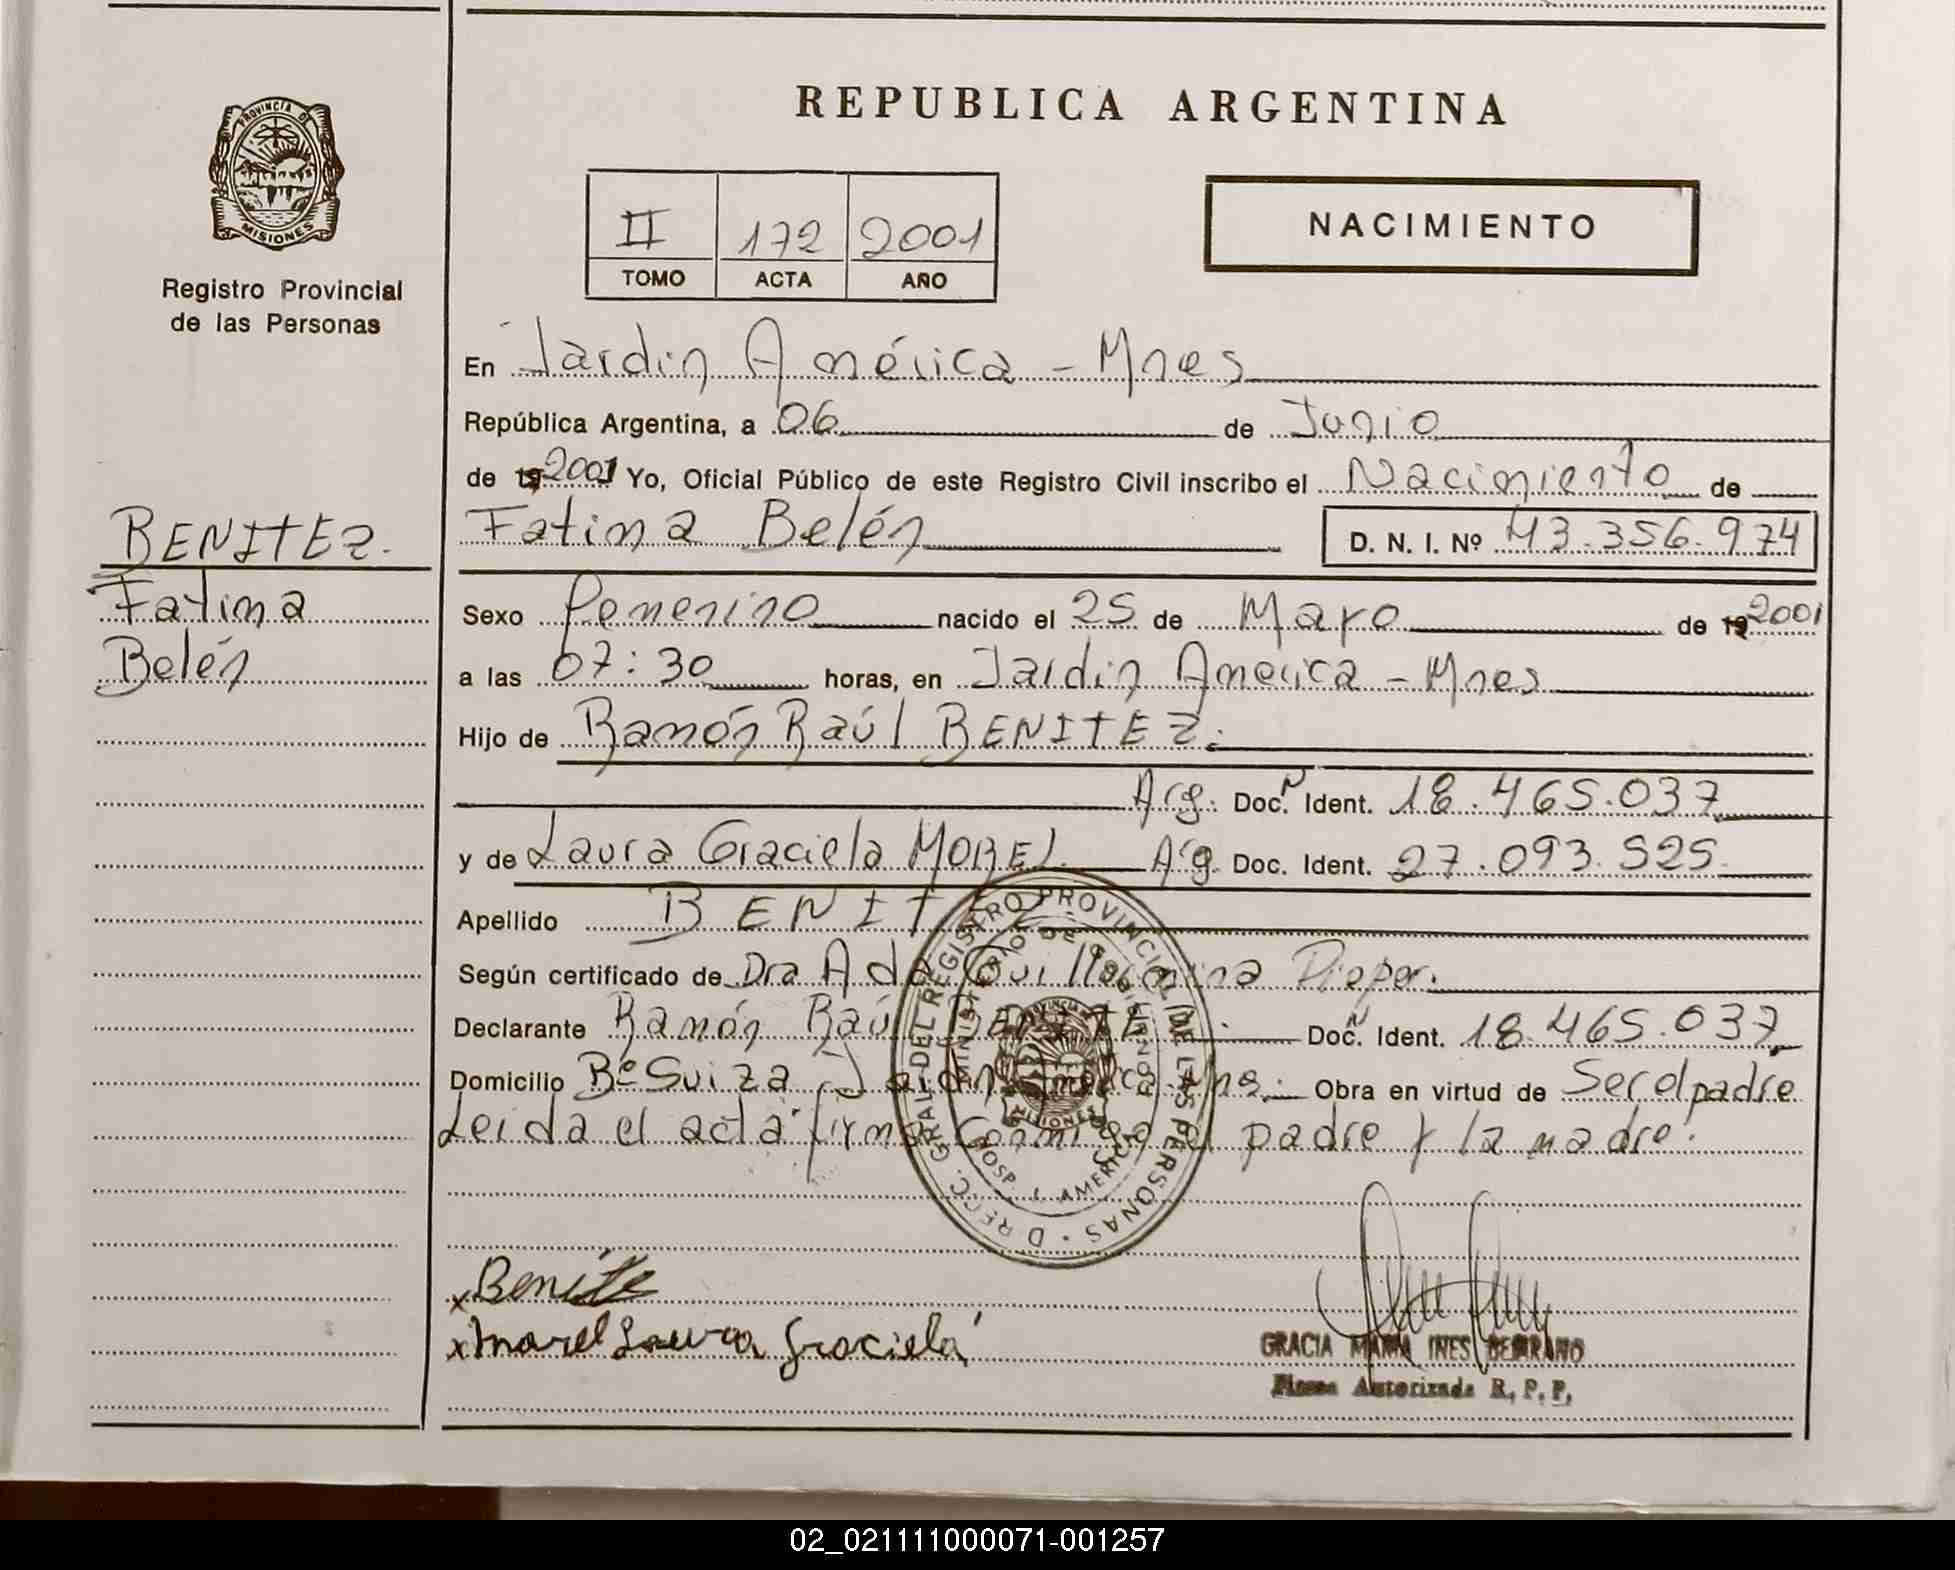 REPUBLICA ARGENTINA
PROVINCIA DE
MISIONES
Registro Provincial
de las Personas
II 172 2001
TOMO ACTA AÑO
NACIMIENTO
En Jardin América - Mnes
República Argentina, a 06 de Junio
de 19 2001 Yo, Oficial Público de este Registro Civil inscribo el Nacimiento de
Fatima Belén D. N. I. Nº 43.356.974
BENITEZ.
Fatima
Belén
Sexo Femenino nacido el 25 de Mayo de 19 2001
a las 07:30 horas, en Jardin América - Mnes
Hijo de Ramón Raúl BENITEZ.
Arg. Doc. Ident. 18.465.037
y de Laura Graciela MOREL Arg. Doc. Ident. 27.093.525
Apellido BENITEZ
Según certificado de Dra Ada Guillermina
Declarante Ramón Raúl BENITEZ Doc. Ident. 18.465.037
Domicilio Bº Suiza Jardin América Mnes. Obra en virtud de Ser el padre
Leida el acta firma conmigo el padre y la madre.
DIRECC. GRAL. DEL REGISTRO PROVINCIAL DE LAS PERSONAS
MINISTERIO DE GOBIERNO
PROVINCIA
MISIONES
HOSP. J. AMERICA
x Benite
x Morel Laura Graciela
GRACIA MARIA INES
Firma Autorizada R. P. P.
02_021111000071-001257